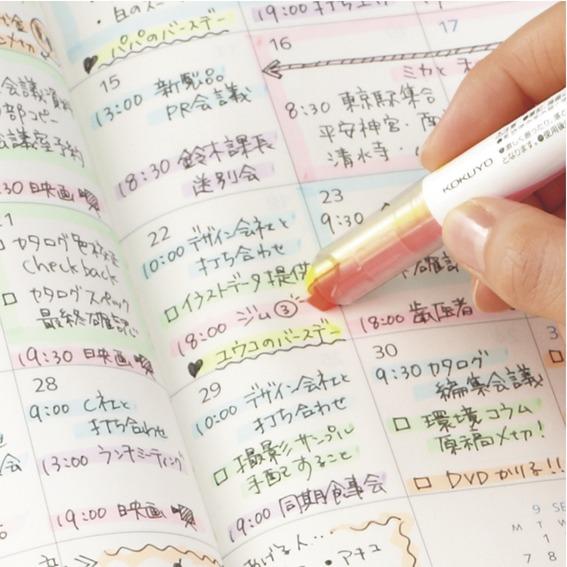 ・白の
パパのバースデー
19:00
会議資料
部コピー
会議室予約
30 映画
15
13:00 新製品
PR会議
18:30 鈴木課長
送別会
16
ミカと
8:30 東京駅集合
平安神宮・
清水寺・
17
KOKUYO
となります。
カタログ
Check back
カタログスペック
最終確認
19:30 映画
22
10:00 デザイン会社と
打ち合わせ
イラストデータ提供
18:00 ジム③
ユウコのバースデー
23
9:30
18:00 歯医者
28
9:00 C社と
打ち合わせ
13:00 ランチミーティング
19:00 映画
29
10:00 デザイン会社と
打ち合わせ
撮影サンプル
手配すること
19:00 同期食事会
30
9:30 カタログ
編集会議
環境コラム
原稿〆切!
DVDかりる!!
あげる人…
・アキコ
9 SE
M T W
1
7 8